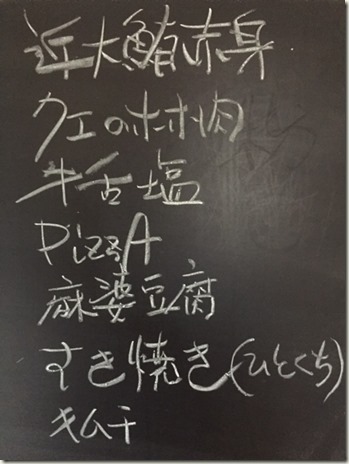 近大鮪赤身
クエのホホ肉
牛舌塩
PizzA
麻婆豆腐
すき焼き(ひとくち)
キムチ